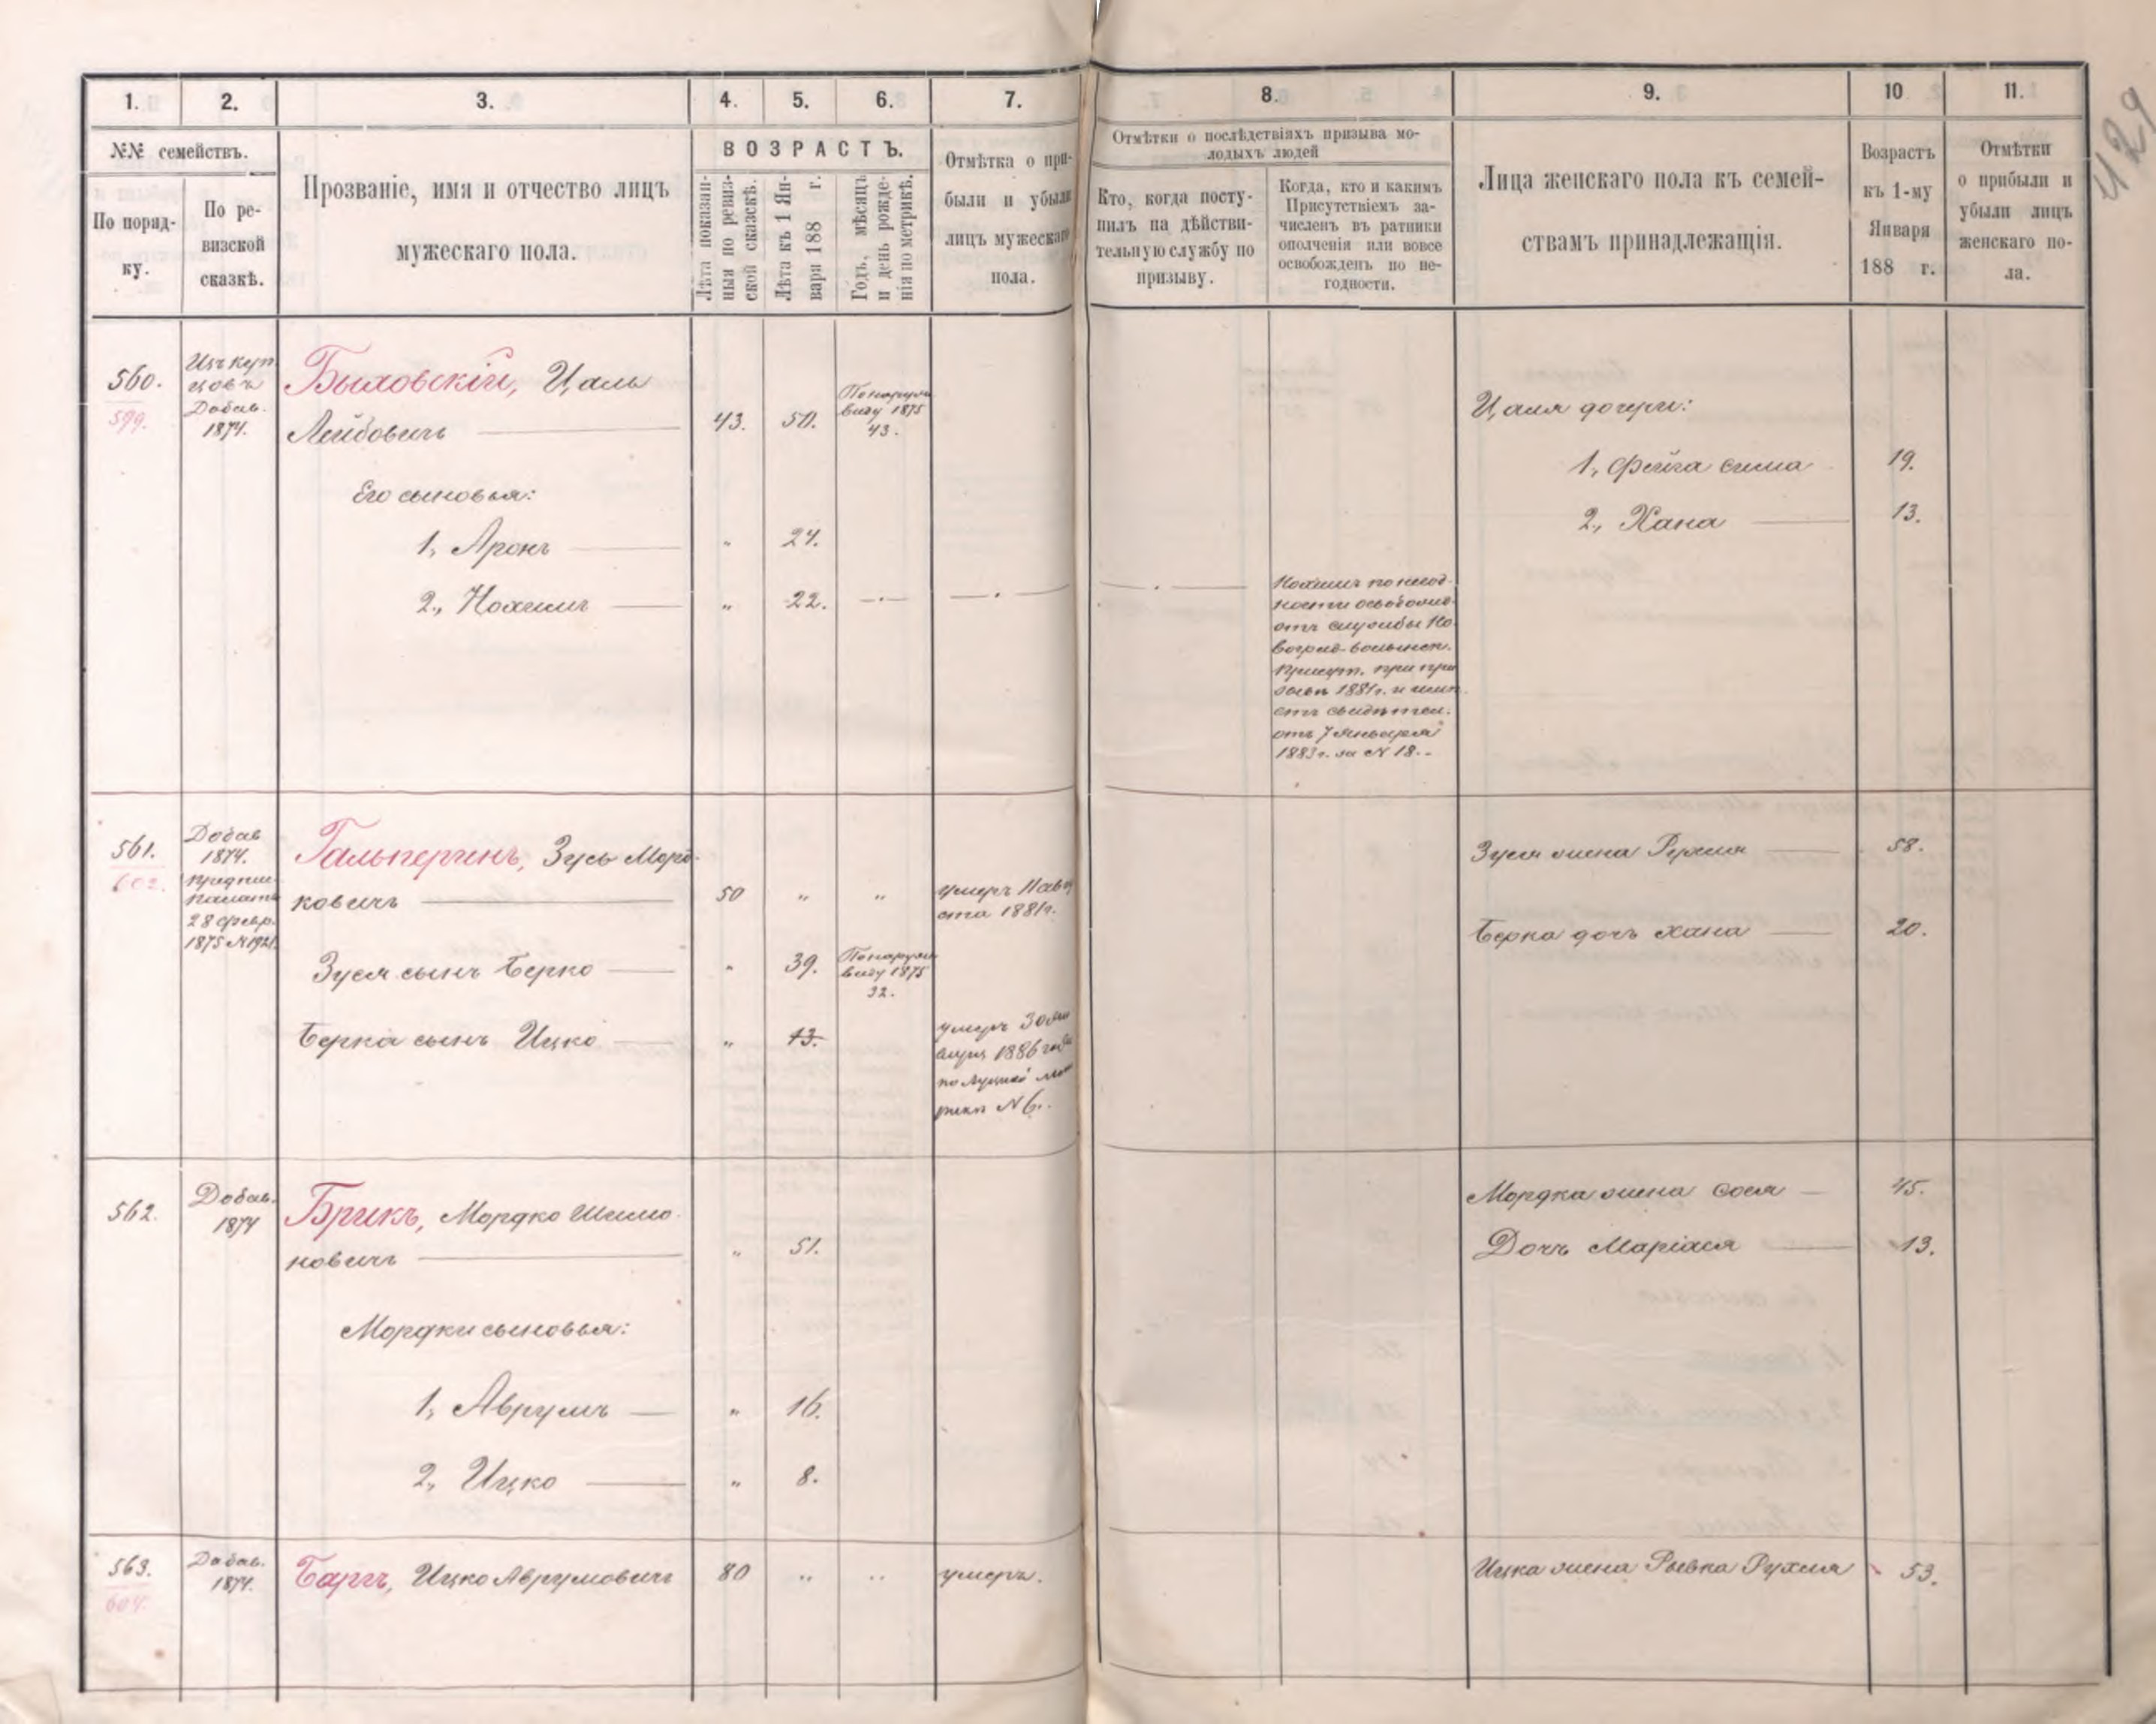 429
1.
2.
3.
4.
5.
6.
7.
8.
9.
10
11.
№№ семействъ.
По поряд-
ку.
По ре-
визской
сказкѣ.
Прозваніе, имя и отчество лицъ
мужескаго пола.
ВОЗРАСТЪ.
Лѣта показан-
ныя по ревиз-
ской сказкѣ.
Лѣта къ 1 Ян-
варя 188 г.
Годъ, мѣсяцъ
и день рожде-
нія по метрикѣ.
Отмѣтка о при-
были и убыли
лицъ мужескаго
пола.
Отмѣтки о послѣдствіяхъ призыва мо-
лодыхъ людей
Кто, когда посту-
пилъ на дѣйстви-
тельную службу по
призыву.
Когда, кто и какимъ
Присутствіемъ за-
численъ въ ратники
ополченія или вовсе
освобожденъ по не-
годности.
Лица женскаго пола къ семей-
ствамъ принадлежащія.
Возрастъ
къ 1-му
Января
188 г.
Отмѣтки
о прибыли и
убыли лицъ
женскаго по-
ла.
560.
599.
Изъ куп
цовъ
Добав.
1874.
Быховскій, Цаль
Лейбовичъ
43.
50.
По наруж
виду 1875
43.
Его сыновья:
1, Аронъ " 24.
2, Нохимъ " 22.
Нохимъ по негод-
ности освобожд.
отъ службы Но-
воград-волынск.
Присут. при при
зывѣ 1881 г. и имѣ
етъ свидѣтел.
отъ 7 Января
1883 г. за N 18.
Цаля дочери:
1, Фейга сима 19.
2, Хана 13.
561.
602.
Добав
1874.
предпис
палаты
28 февр.
1875 N 1921.
Гальперинъ, Зусь Морд-
ковичъ 50 " "
умеръ 11 авгу
ста 1881 г.
Зуся сынъ Берко " 39.
По наруж
виду 1875
32.
Берка сынъ Ицко " 13.
умеръ 30
1886 года
по Луцкой
N 6.
Зуся жена Рухля 58.
Берка дочь Хана 20.
562.
Добав.
1874
Брикъ, Мордко Шимо-
новичъ " 51.
Мордки сыновья:
1, Аврумъ " 16.
2, Ицко " 8.
Мордка жена Сося 45.
Дочь Маріася 13.
563.
604.
Добав.
1874.
Баргъ, Ицко Аврумовичъ 80 " " умеръ.
Ицка жена Рывка Рухля 53.